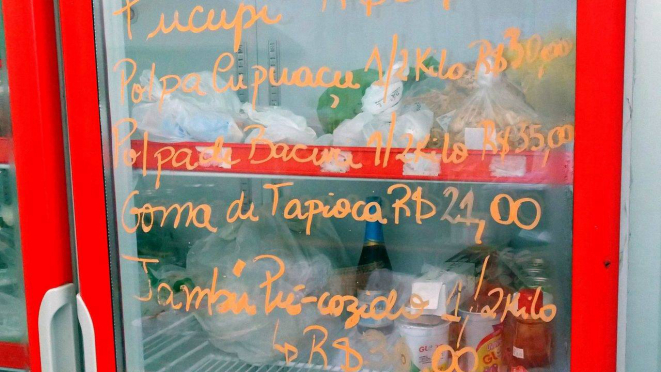 Tucupi
Polpa Cupuaçu 1/2 Kilo R$30,00
Polpa de Bacuri 1/2 Kilo R$35,00
Goma de Tapioca R$ 21,00
Jambú Pré-cozido 1/2 Kilo
↳ R$ ,00